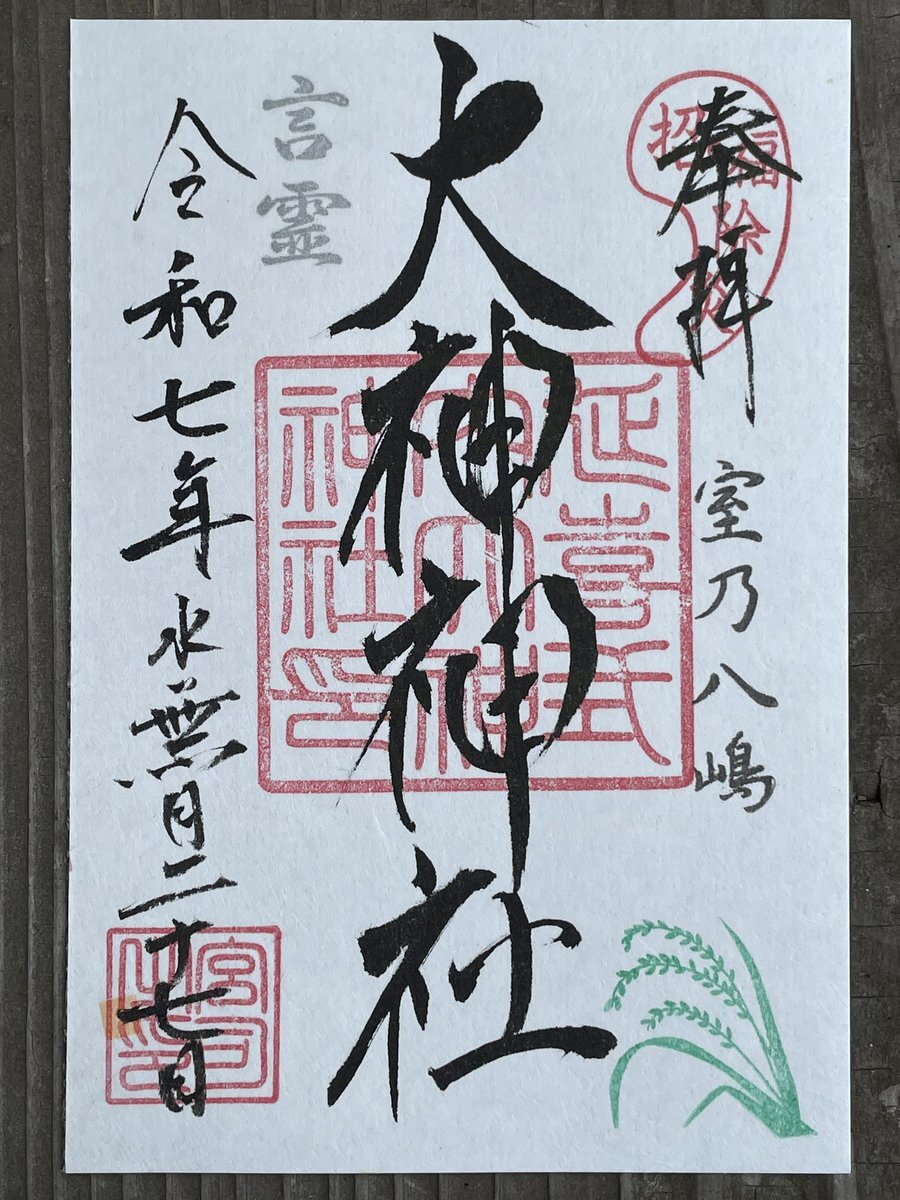 奉拝
招福除災
室乃八嶋
大神神社
延喜式
内大神
神社印
言霊
令和七年水無月二十七日
宮司
之印